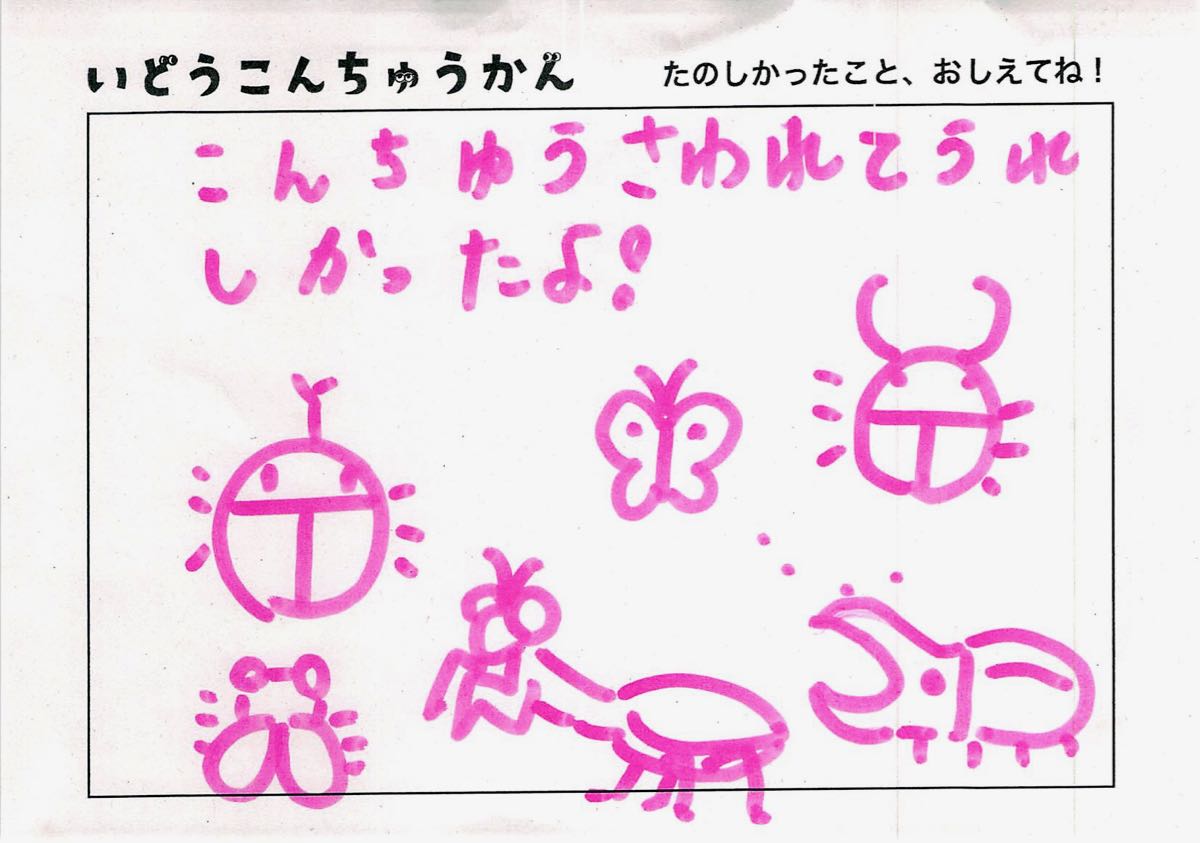 いどうこんちゅうかん
たのしかったこと、おしえてね！
こんちゅうさわれてうれ
しかったよ！